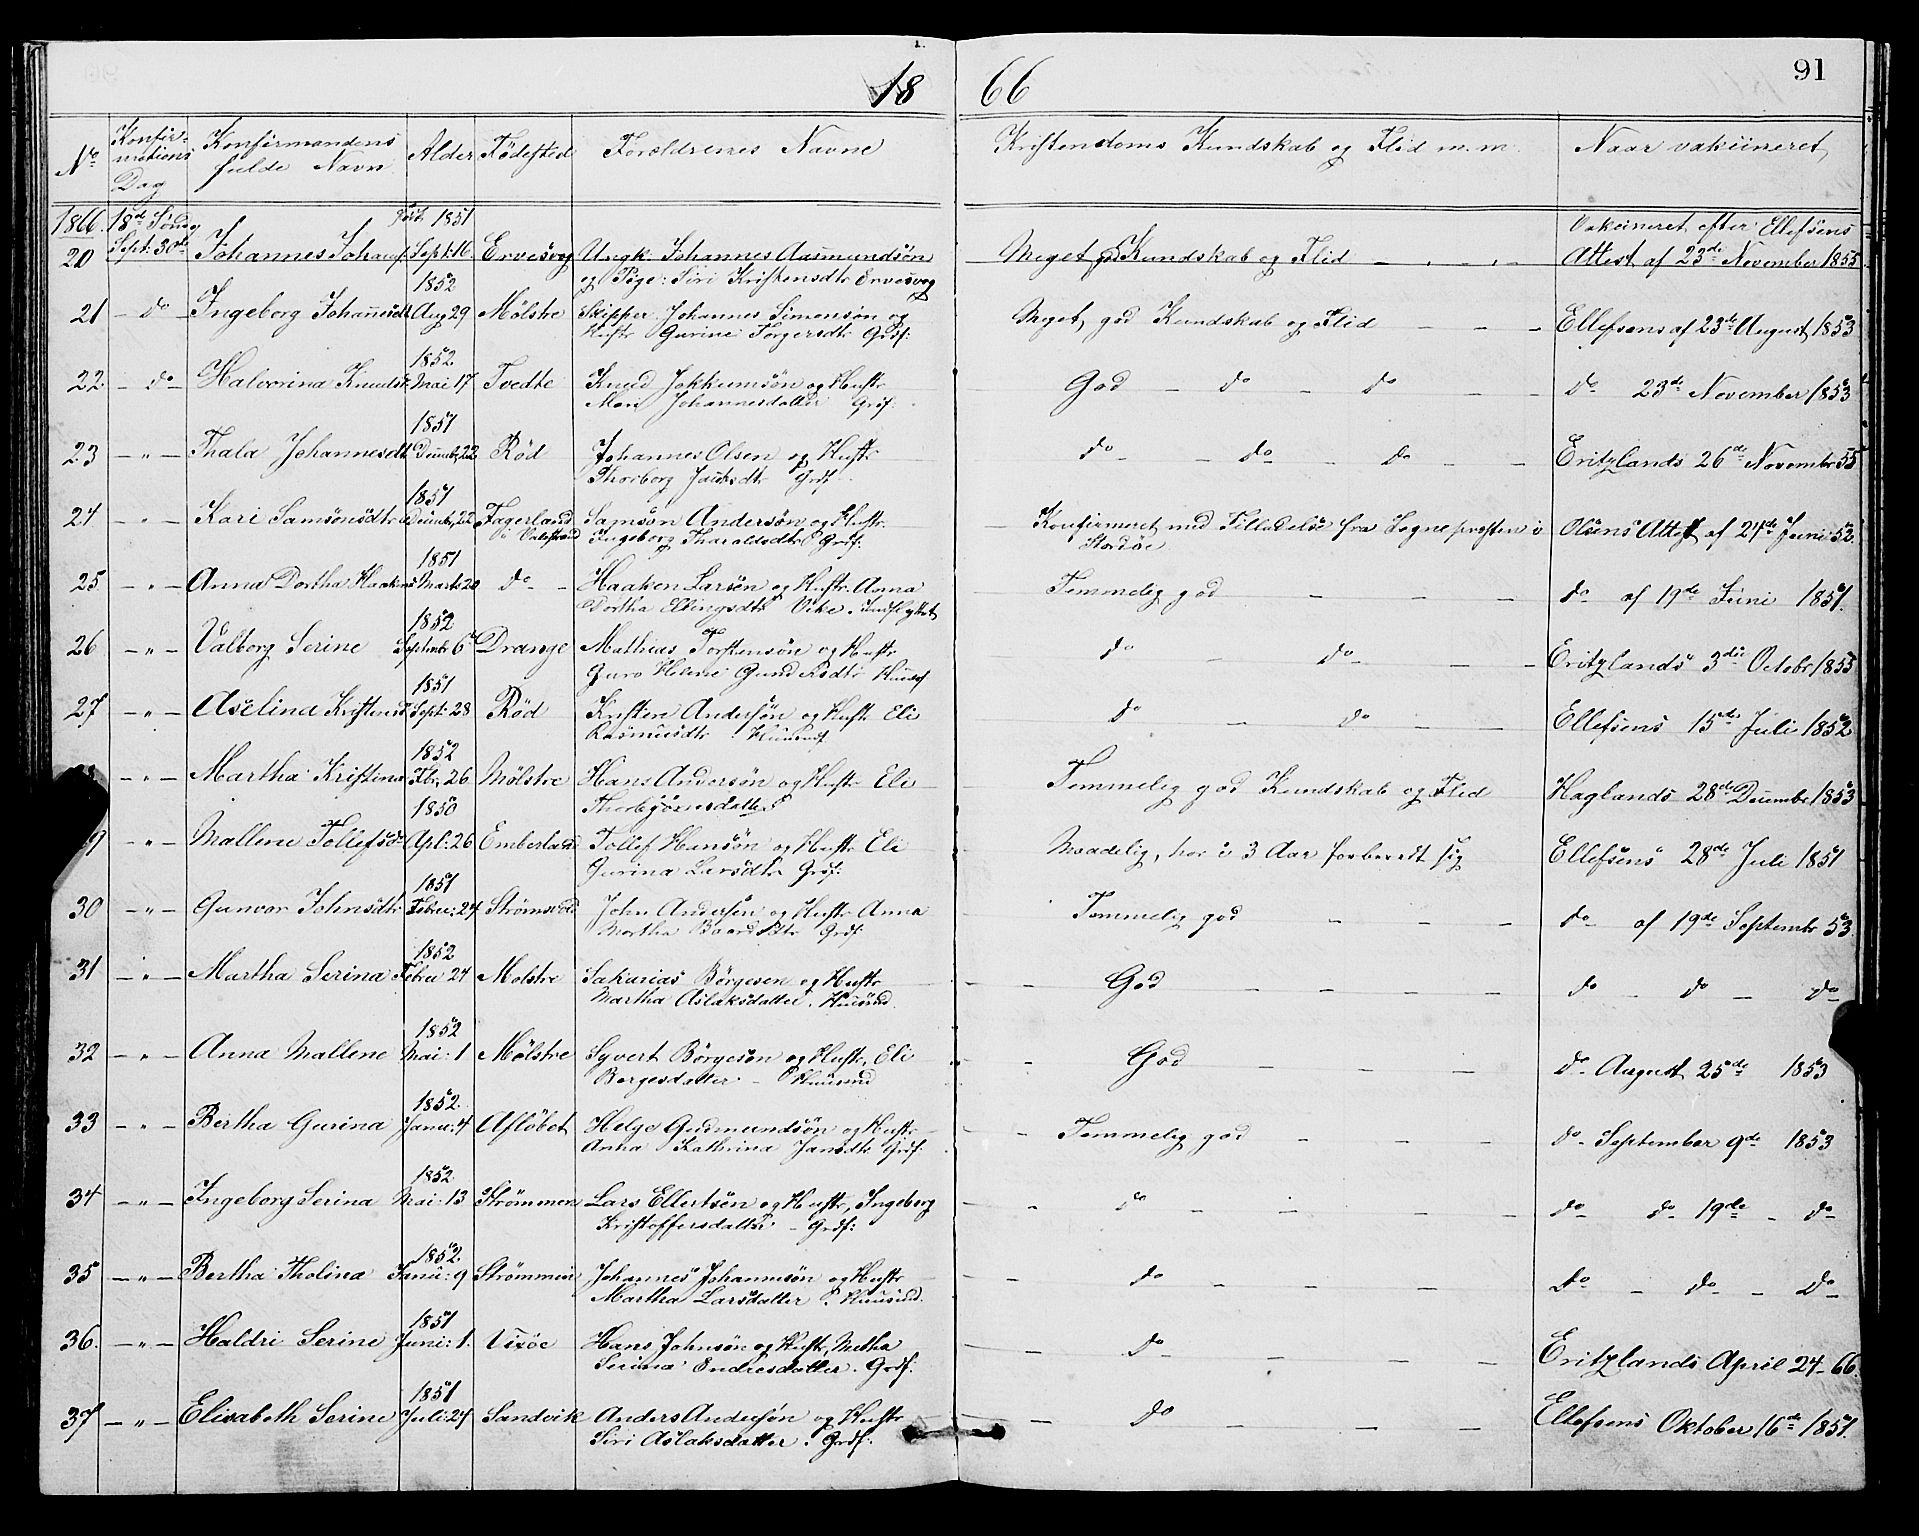 18 66
91
No
Konfirmations Dag
Konfirmandens fulde Navn
Alder
Fødested
Forældrenes Navne
Kristendoms Kundskab og Flid m. m.
Naar vakcineret
1866. 18de Søndag 1851 Vakcineret efter Ellefsens
20 Sept: 30te Johannes Sept: 16 Ervesvog Ungk. Johannes Aamundsøn Meget god Kundskab og Flid Attest af 23de November 1855
og Pige: Siri Kristensdtr Ervesvog
1852
21 - do - Ingeborg Johannesdt Aug 29 Mølstre Skipper Johannes Simonsøn og Meget god Kundskab og Flid Ellefsens af 23de August 1853
Hustr Gurine Torgersdtr Grdf:
1852
22 - do - Halvorina Knudsdt Mai 17 Tvedte Knud Jokkumsøn og Hustr God - do - do do 23de November 1853
Mari Johannesdatter Grdf:
1851
23 - " - Thala Johannesdt Decmb, 22 Rød Johannes Olsen og Hustr do - do - do Eritzlands 26de Novembr 55
Thorborg Grdf
1851
24 - " - Kari Samsonsdtr Decmb, 22 Fagerland Samson Andersøn og Hustr Konfirmeret med Tilladelse fra Sognepresten i Olsens Attest af 24de Juni 52.
i Valestrand Ingeborg Tharaldsdtr Grdf: Stordøe
1851
25 - " - Anna Dortha Haakens Marts 20 do - Haaken Larsøn og Hustr. Anna Temmelig god do af 19de Juni 1851.
Dortha Ellingsdtr Vike. Indflyttet
1852
26 - " - Valborg Serine Septmbr 6 Drange Mathias Torstensøn og Hustr do - do - Eritzlands 3die Octobr 1855
Guro Helene Gundersdtr
1851
27 - " - Aselina Kristensd Sept: 28 Rød Kristen Andersøn og Hustr Eli do - do - Ellefsens 15de Juli 1852
Rasmusdtr
1852
- " - Martha Kristina Fbr, 26 Mølstre Hans Andersøn og Hustr Eli Temmelig god Kundskab og Flid Haglands 28de Decmbr 1853
Thorbjørnsdatter
1850
9 - " - Mallene Tollefsd Apl: 26 Emberland Tollef Hansøn og Hustr Eli Maadelig, har i 3 Aar forberedt sig Ellefsens 28de Juli 1851
Gurina Larsdtr Grdf:
1851
30 - " - Gunvor Johnsdtr Febru: 24 John Andersøn og Hustr Anna Temmelig god do af 19de Septembr 53.
Martha Baardsdtr Grdf:
1852
31 - " - Martha Serina Febru 24 Mølstre Sakarias Børgesen og Hustr God do - do - do
Martha Aslaksdatter. Huusmd
1852
32 - " - Anna Mallene Mai: 1 Mølstre Syvert Børgesøn og Hustr, Eli God do August 25de 1853
Børgesdatter - Huusmd
1852.
33 - " - Bertha Gurina Janu: 4 Afløbet Helge Gudmundsøn og Hustr Temmelig god do September 9de 1853
Anna Kathrina Jansdtr Grdf:
1852
34 - " - Ingeborg Serina Mai: 13 Strømmen Lars Ellertsøn og Hustr, Ingeborg do do do 19de - do
Kristoffersdatter - Grdf:
1852.
35 - " - Bertha Tholina Janu: 9 Strømmen Johannes Johannesøn og Hustr do do - do - do
Martha Larsdatter. Huusmd.
1851
36. - " - Haldri Serine Juni: 1. Vixøe Hans Johnsøn og Hustr, Metha do Eritzlands April 24 - 66.
Serina Endresdatter. Grdf.
1851
37 - " - Elisabeth Serine Juli: 24 Sandvik Anders Andersøn og Hustr do Ellefsens Oktober 16de 1851.
Siri Aslaksdatter. Grdf: